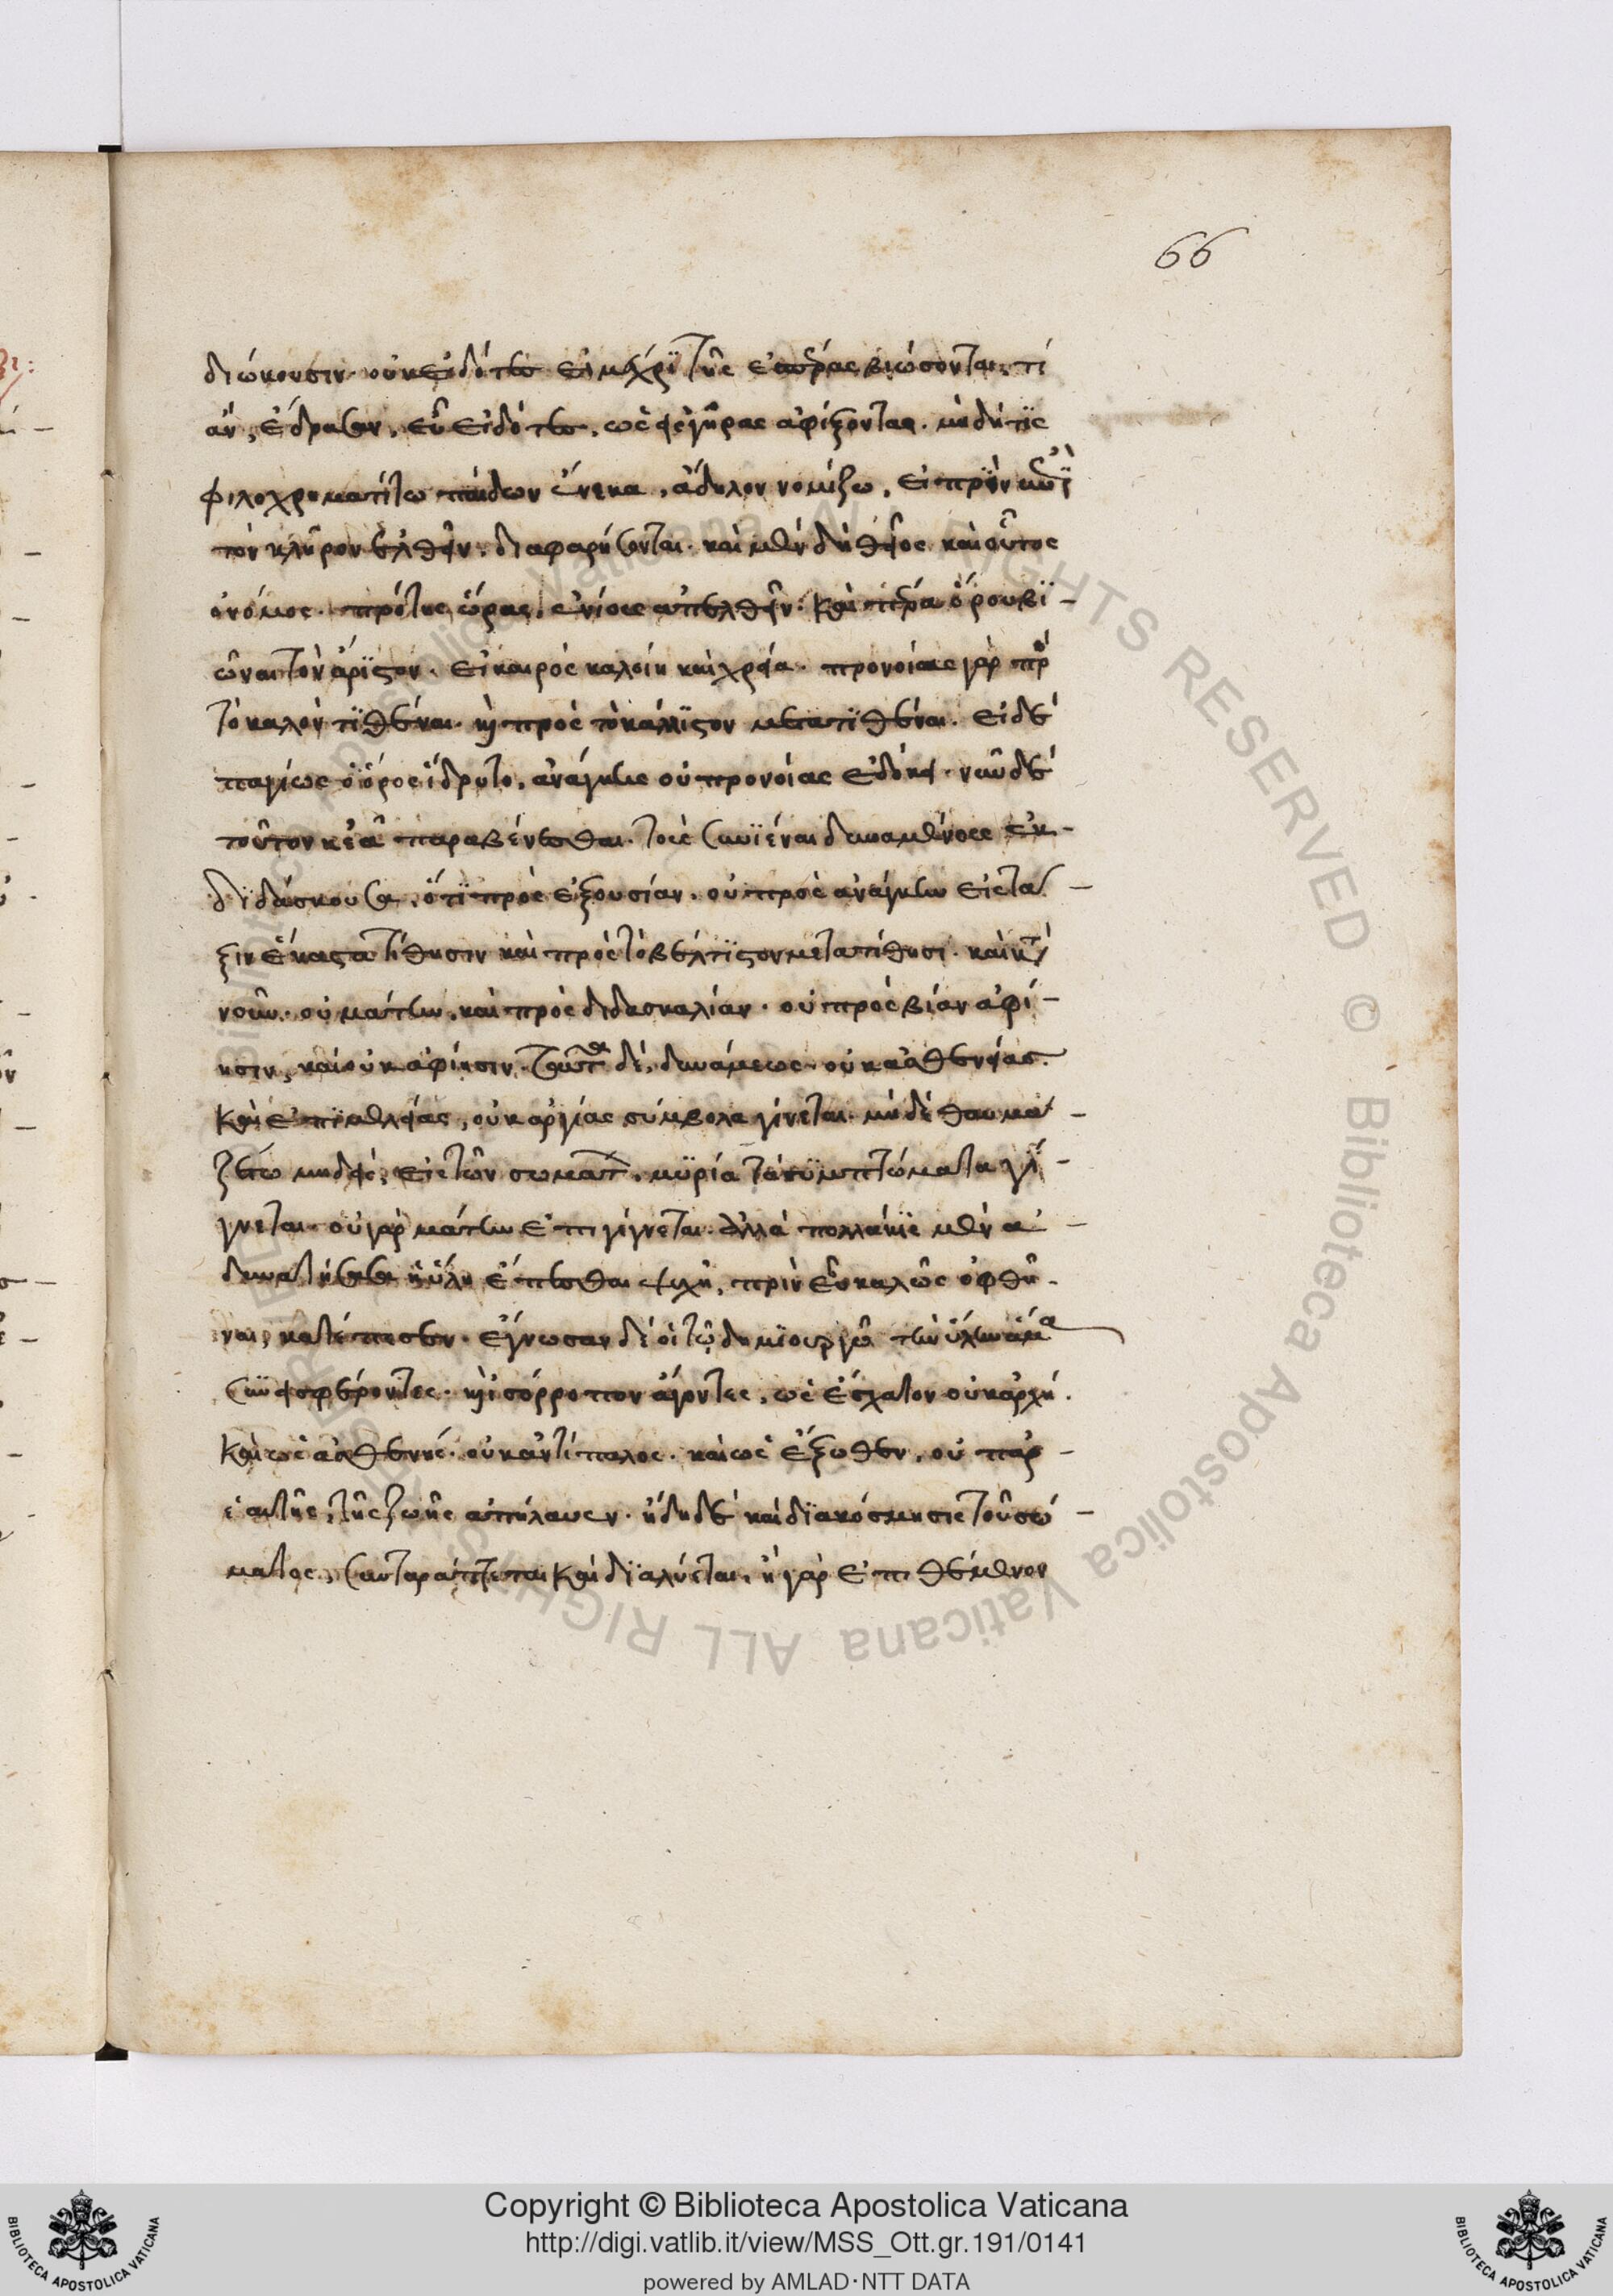 66
διώκουσιν οὐκ εἰδότες εἰ μέχρι τῆς ἑσπέρας βιώσονται, τί
ἂν, ἔδρασαν, εὖ εἰδότες, ὡς εἰς γῆρας ἀφίξονται. μὴ δή τις
φιλοχρηματίτω παίδων ἕνεκα, ἄδηλον νομίζω, εἰ πρὶν
τὸν κλῆρον ἐλθεῖν, διαφαρήσονται. καὶ μὲν δὴ θεῖος καὶ οὗτος
ὁ νόμος. πρό της ὥρας, ἐνίοις ἀπελθεῖν. καὶ πέρα ὅρου βι-
ῶναι τὸν ἄριστον. εἰ καιρὸς καλοίη καὶ χρεία. προνοίας γὰρ πρὸ
τὸ καλὸν τιθέναι. καὶ πρὸς τὸ κάλλιστον μετατιθέναι. εἰ δὲ
παγίως ὁ ὅρος ἵδρυτο, ἀνάγκης οὐ προνοίας ἐδόκει. νῦν δὲ
τοῦτον κἐᾶ παραβαίνεσθαι. τοὺς συνιέναι δυναμένους ἐκ-
διδάσκουσα, ὅτι πρὸς ἐξουσίαν, οὐ πρὸς ἀνάγκην εἰς τά-
ξιν ἕκαστα τίθησιν καὶ πρὸς τὸ βέλτιστον μετατίθησι. καὶ κατὰ
νοῦν. οὐ μάτην, καὶ πρὸς διδασκαλίαν. οὐ πρὸς βίαν ἀφί-
ησιν, καὶ οὐκ ἀφίησιν. ταῦτα δὲ, δυνάμεως οὐκ ἀσθενείας.
καὶ ἐπιμελείας, οὐκ ἀργίας σύμβολα γίνεται. μὴ δὲ θαυμα-
ζέτω μηδεὶς, εἰ τῶν σωμάτων, μυρία τὰ συμπτώματα γί-
γνεται. οὐ γὰρ μάτην ἔτι γίγνεται. ἀλλὰ πολλάκις μὲν ἀ-
δυνατήσασα ἡ ὕλη ἕπεσθαι ψυχῇ, πρὶν εὖ καλῶς ὀφθῆ-
ναι, κατέπεσεν. ἔγνωσαν δὲ οἱ τῷ δημιουργῷ τὴν ὕλην ἅμα
συνεισφέροντες. καὶ ἰσόρροπον ἄγοντες, ὡς ἔσχατον οὐκ ἀρχή.
καὶ ὡς ἀσθενὴς. οὐκ ἀντίπαλος. καὶ ὡς ἔξωθεν, οὐ παρ-
ἑαυτῆς, τῆς ζωῆς ἀπήλαυεν. ἤδη δὲ καὶ διακόσμησις τοῦ σώ-
ματος, συνταράττεται καὶ διαλύεται, ἢ γὰρ ἐπιθέμενον
Copyright © Biblioteca Apostolica Vaticana
http://digi.vatlib.it/view/MSS_Ott.gr.191/0141
powered by AMLAD·NTT DATA
BIBLIOTECA APOSTOLICA VATICANA
BIBLIOTECA APOSTOLICA VATICANA
© Biblioteca Apostolica Vaticana ALL RIGHTS RESERVED